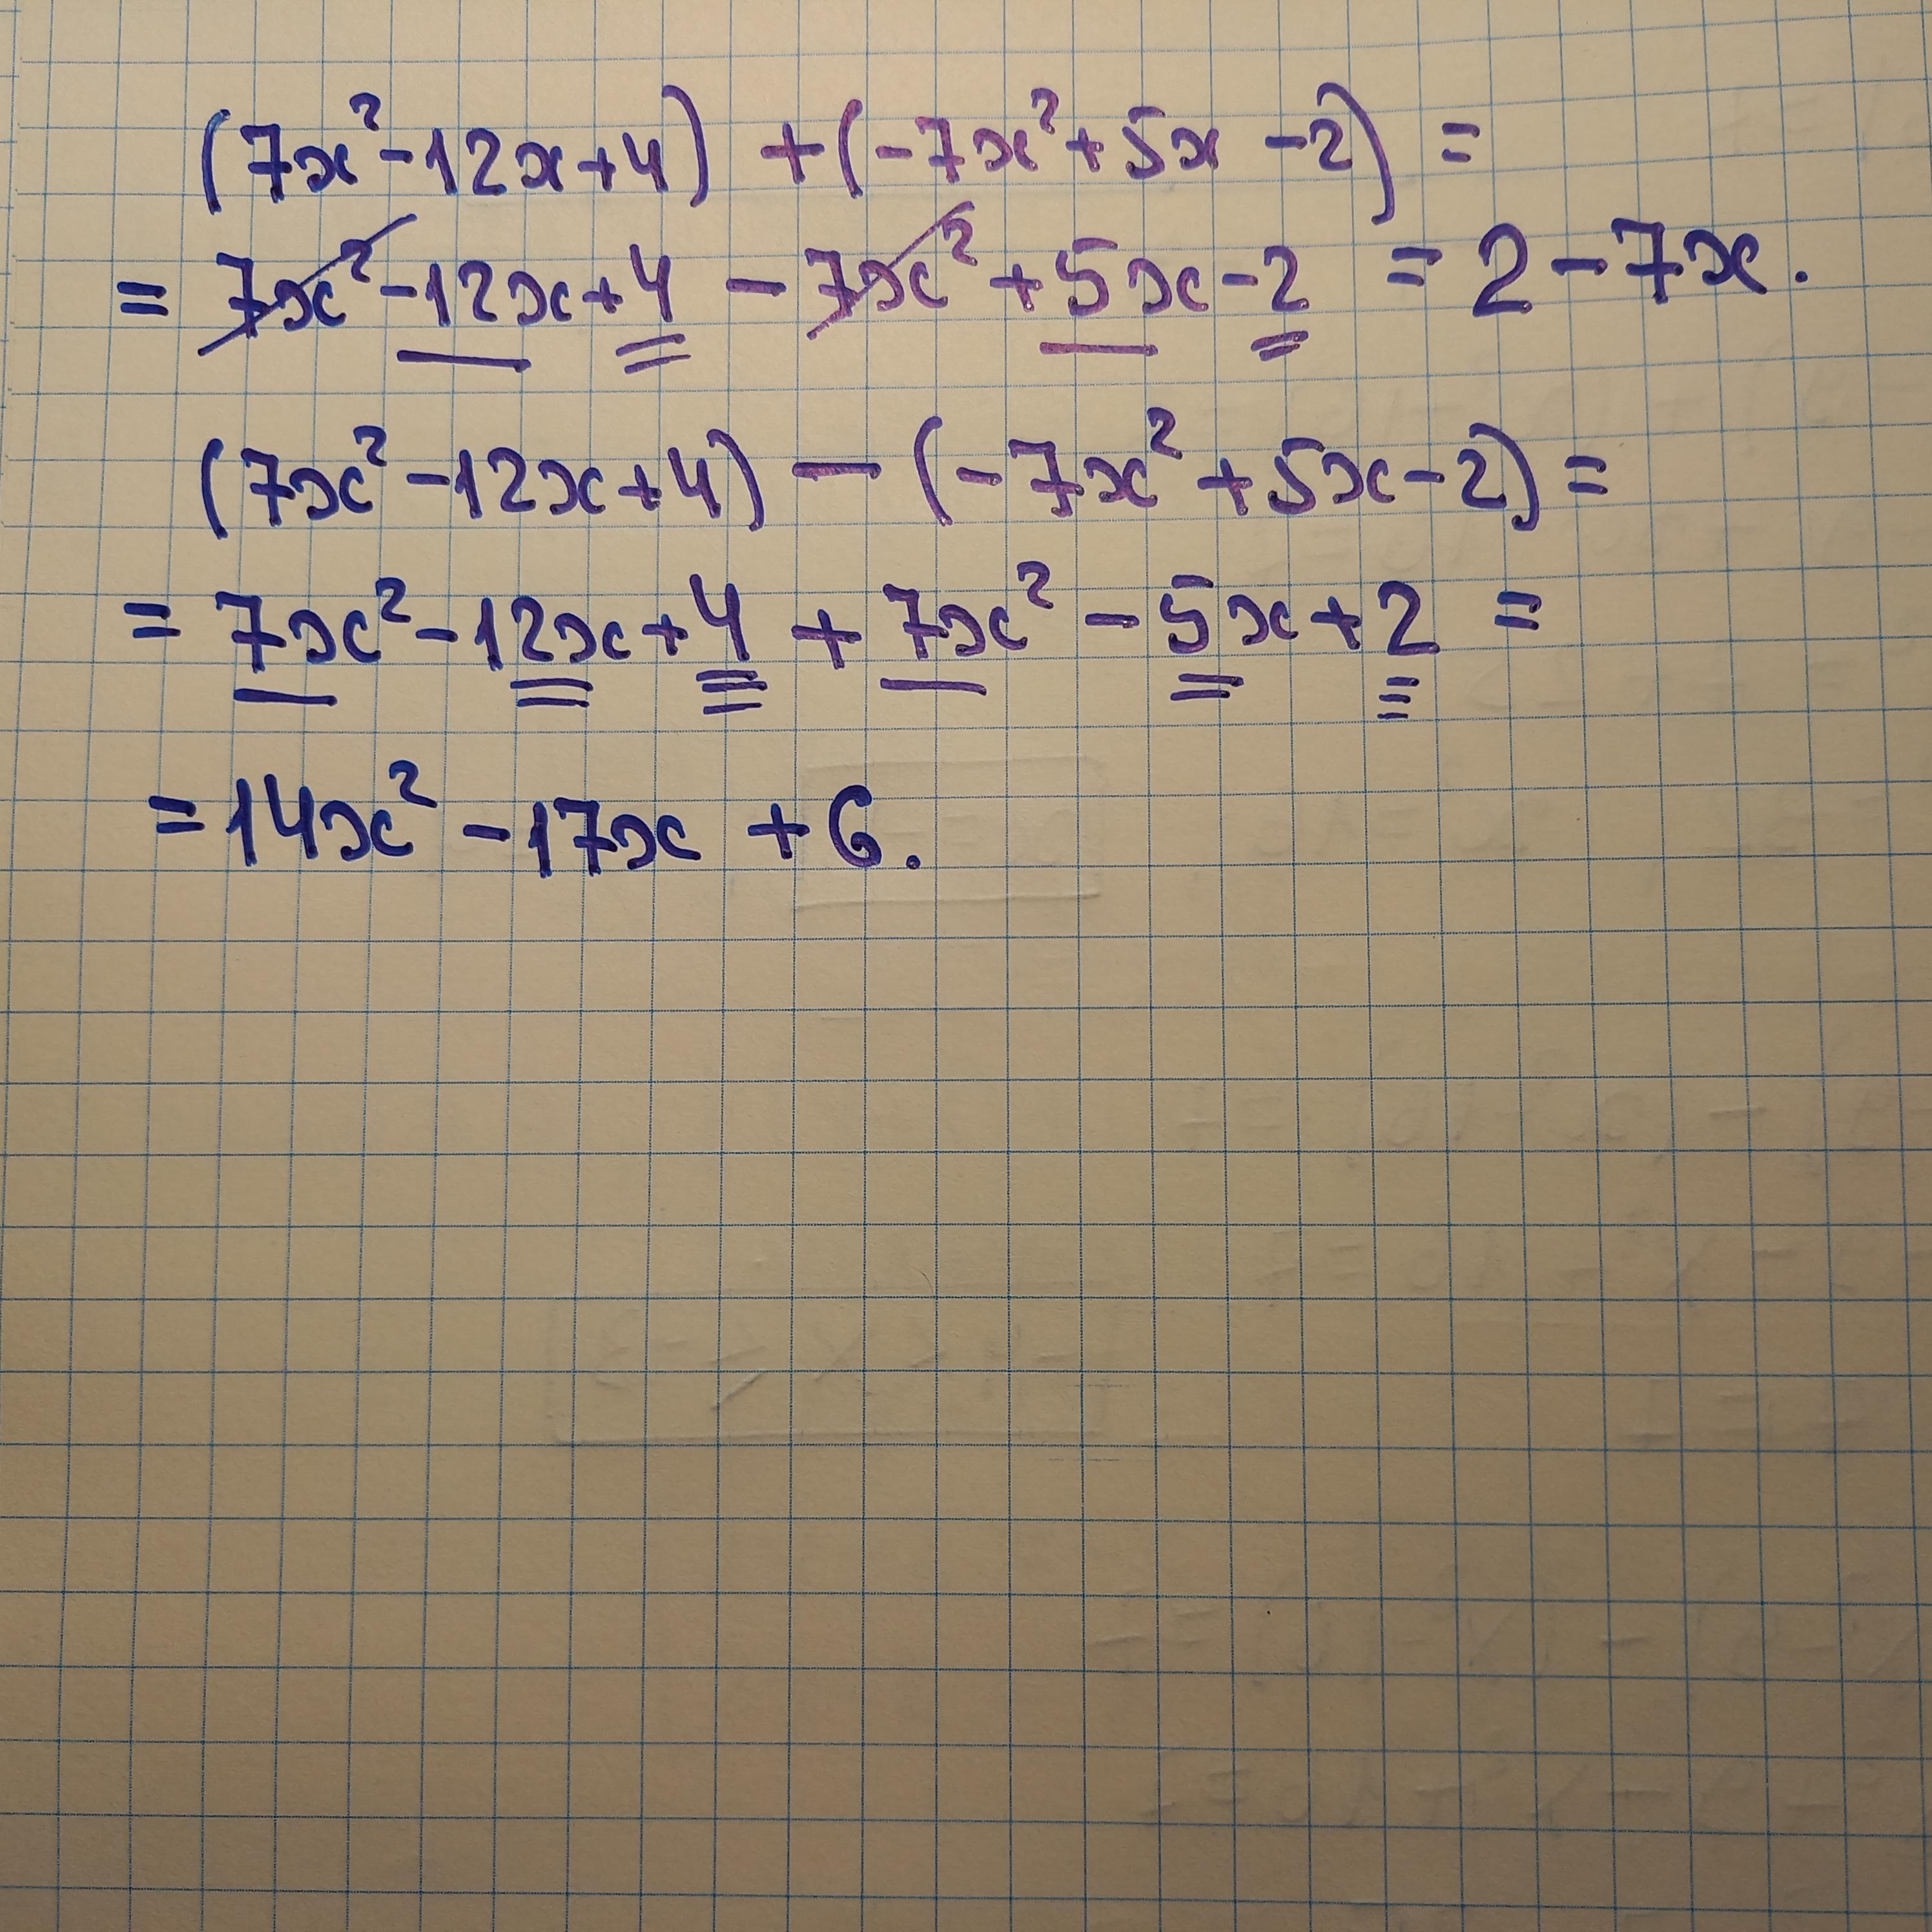 (7x²-12x+4) +(-7x²+5x -2) =
= 7x²-12x+4 - 7x² +5x-2 = 2-7x.
(7x²-12x+4) - (-7x² +5x-2) =
= 7x²-12x+4 + 7x² -5x+2 =
=14x² -17x +6.